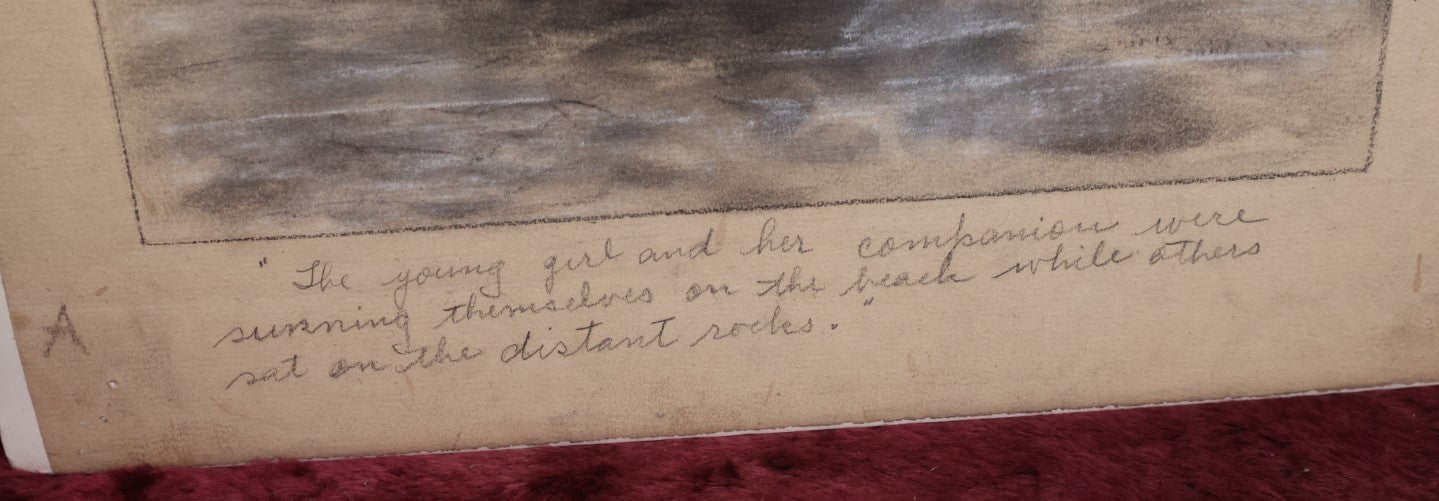 "The young girl and her companion were
sunning themselves on the beach while others
sat on the distant rocks."
A